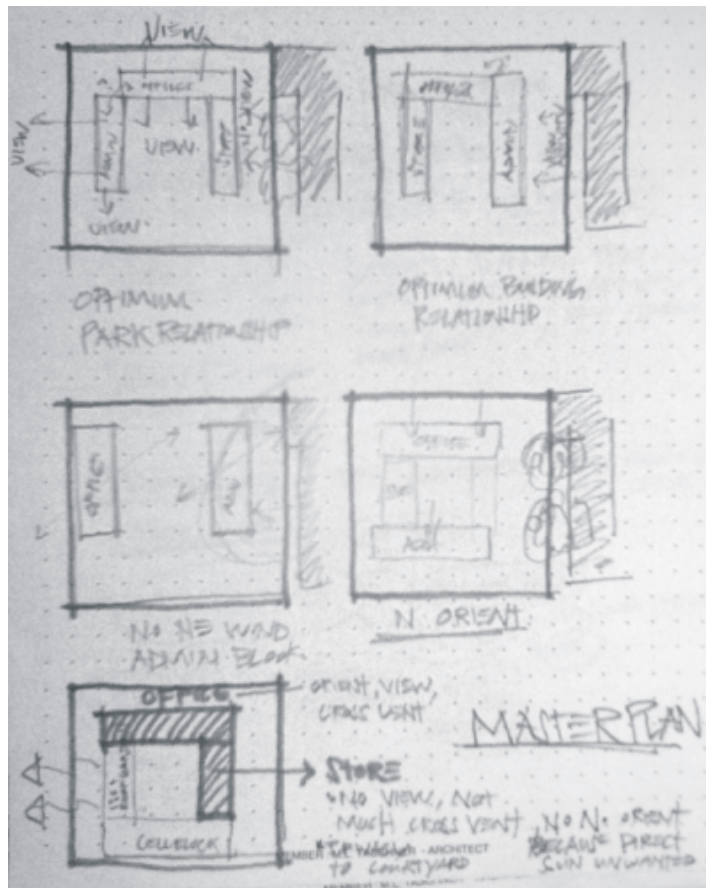 VIEW
OFFICE
VIEW
ADMIN
VIEW
STORE
NO VIEW
VIEW
OPTIMUM
PARK RELATIONSHIP
OFFICE
STORE
ADMIN
OPTIMUM BUILDING
RELATIONSHIP
OFFICE
ADM
NO NE WIND
ADMIN BLOCK
OFFICE
ADM
N ORIENT.
OFFICE
ORIENT, VIEW,
CROSS VENT
MASTERPLAN
STORE
NO VIEW, NOT
MUCH CROSS VENT
TO COURTYARD
NO N. ORIENT
BECAUSE DIRECT
SUN UNWANTED
CELLBLOCK
ARCHITECT